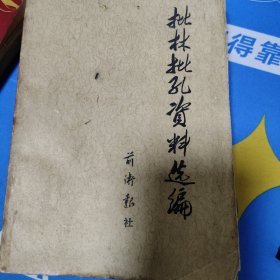 批林批孔資料选編
前衛報社
得靠